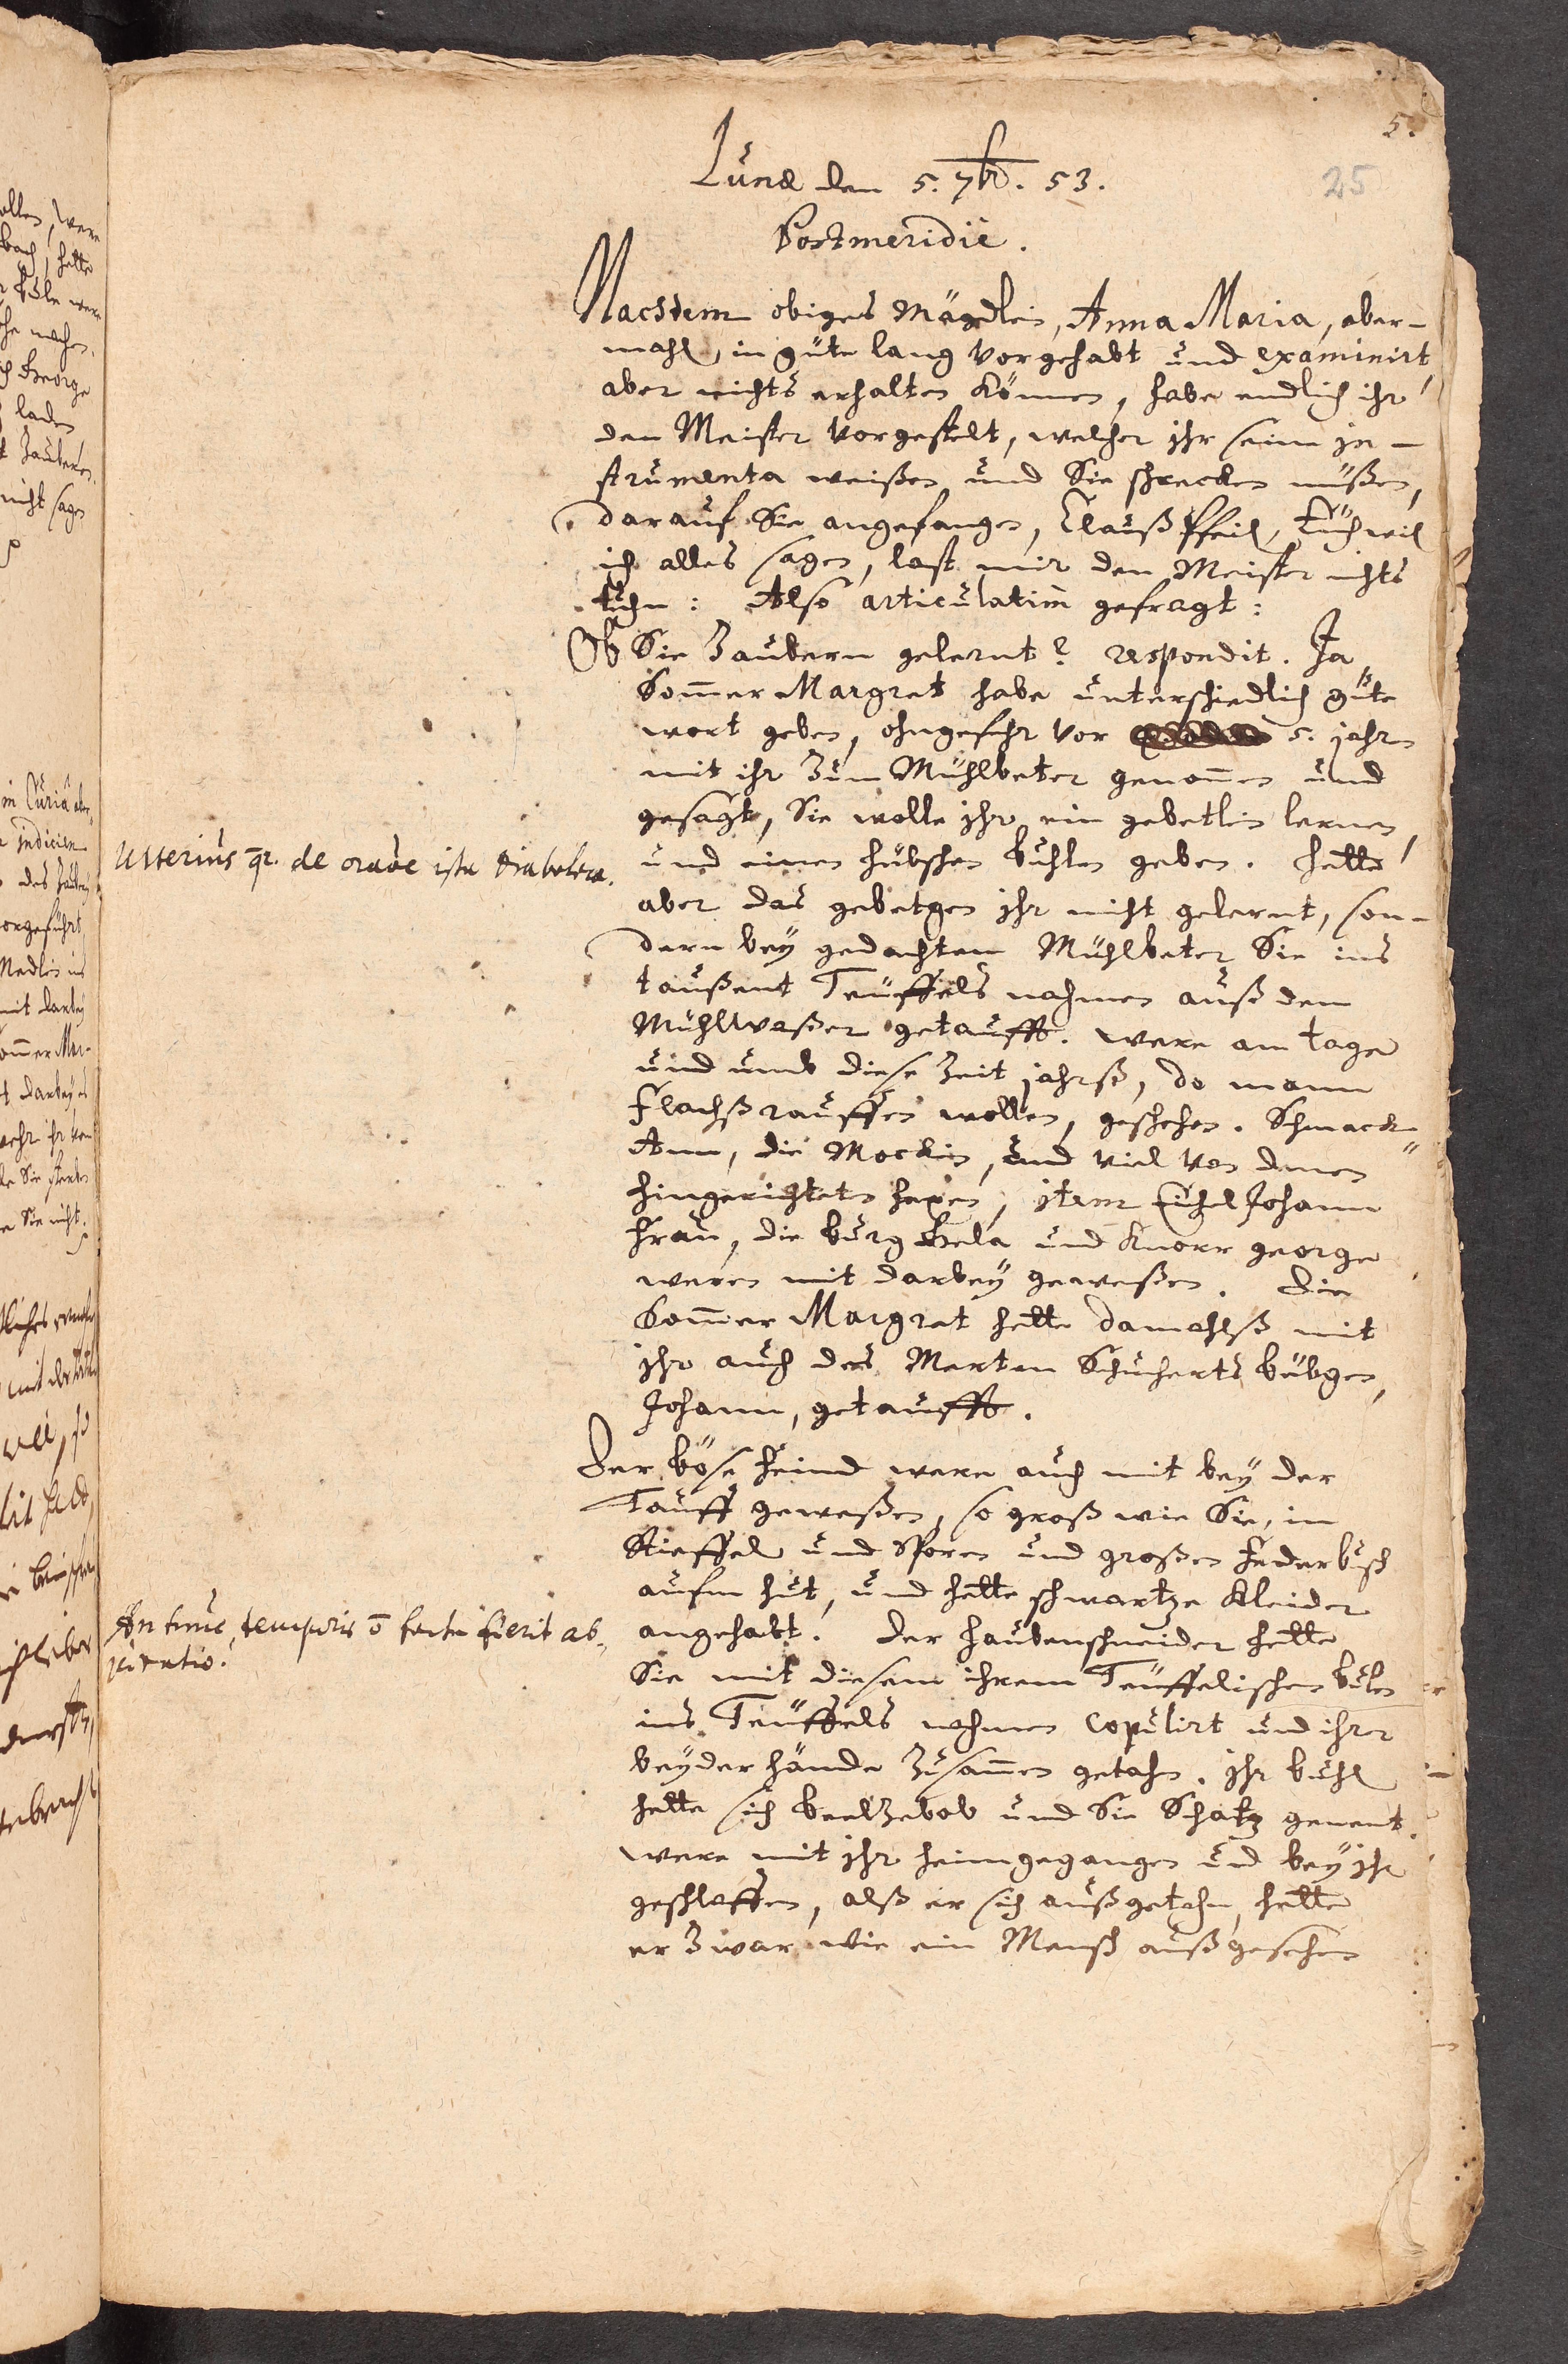 5.
25
Lunæ den 5. 7br. 53.
Postmeridie.
Nachdem obiges Mägdlein, Anna Maria, aber-
mahl, in güte lang vorgehabt und examinirt,
aber nichts erhalten können, habe endlich ihr
den Meister vorgestelt, welcher ihr seine in-
strumenta weißen und Sie schrecken müßen,
darauf Sie angefangen, Clauß Pfeil, Euch will
ich alles sagen, last mir den Meister nichts
tuhn: Also articulatim gefragt:
Ob Sie Zaubern gelernt? respondit. Ja,
Sommer Margret habe unterschiedlich gute
wort geben, ohngefehr vor 5. jahren
mit ihr zum Mühlbeter genommen und
gesagt, Sie wolle ihr ein gebetlein lernen,
und einen hübschen buhlen geben. hette
aber das gebetgen ihr nicht gelernt, son-
dern bey gedachtem Mühlbeter Sie ins
taußent Teuffels nahmen auß dem
Mühlwaßer getaufft. were am tage
und umb diese Zeit jahrß, da mann
Flachß rauffen wollen, geschehen. Schmack
Ann, die Mockin, und viel von denen
hingerichteten hexen, item Eichel Johann
Frau, die burg Bela und Knorr george
weren mit darbey geweßen. Die
Sommer Margret hette damahlß mit
ihr auch des Merten Schucherts bübgen,
Johann, getaufft.
Der böse Feind were auch mit bey der
Tauff geweßen, so groß wie Sie, in
Stieffel und Sporen und großen Federbusch
aufm hut, und hette schwartze Kleider
angehabt. Der haubenschneider hette
Sie mit diesem ihrem Teuffelischen bulen
ins Teuffels nahmen copulirt und ihrer
beyder hände zusammen getahn. ihr buhl
hette sich beelzebob und Sie Schatz genent.
were mit ihr heimgegangen und bey ihr
geschlaffen, alß er sich außgetahn, hette
er zwar wie ein Mensch außgesehen
Ulterius qr. de orãoe ista diabolica.
An hinc temporis õ facta fuerit ab-